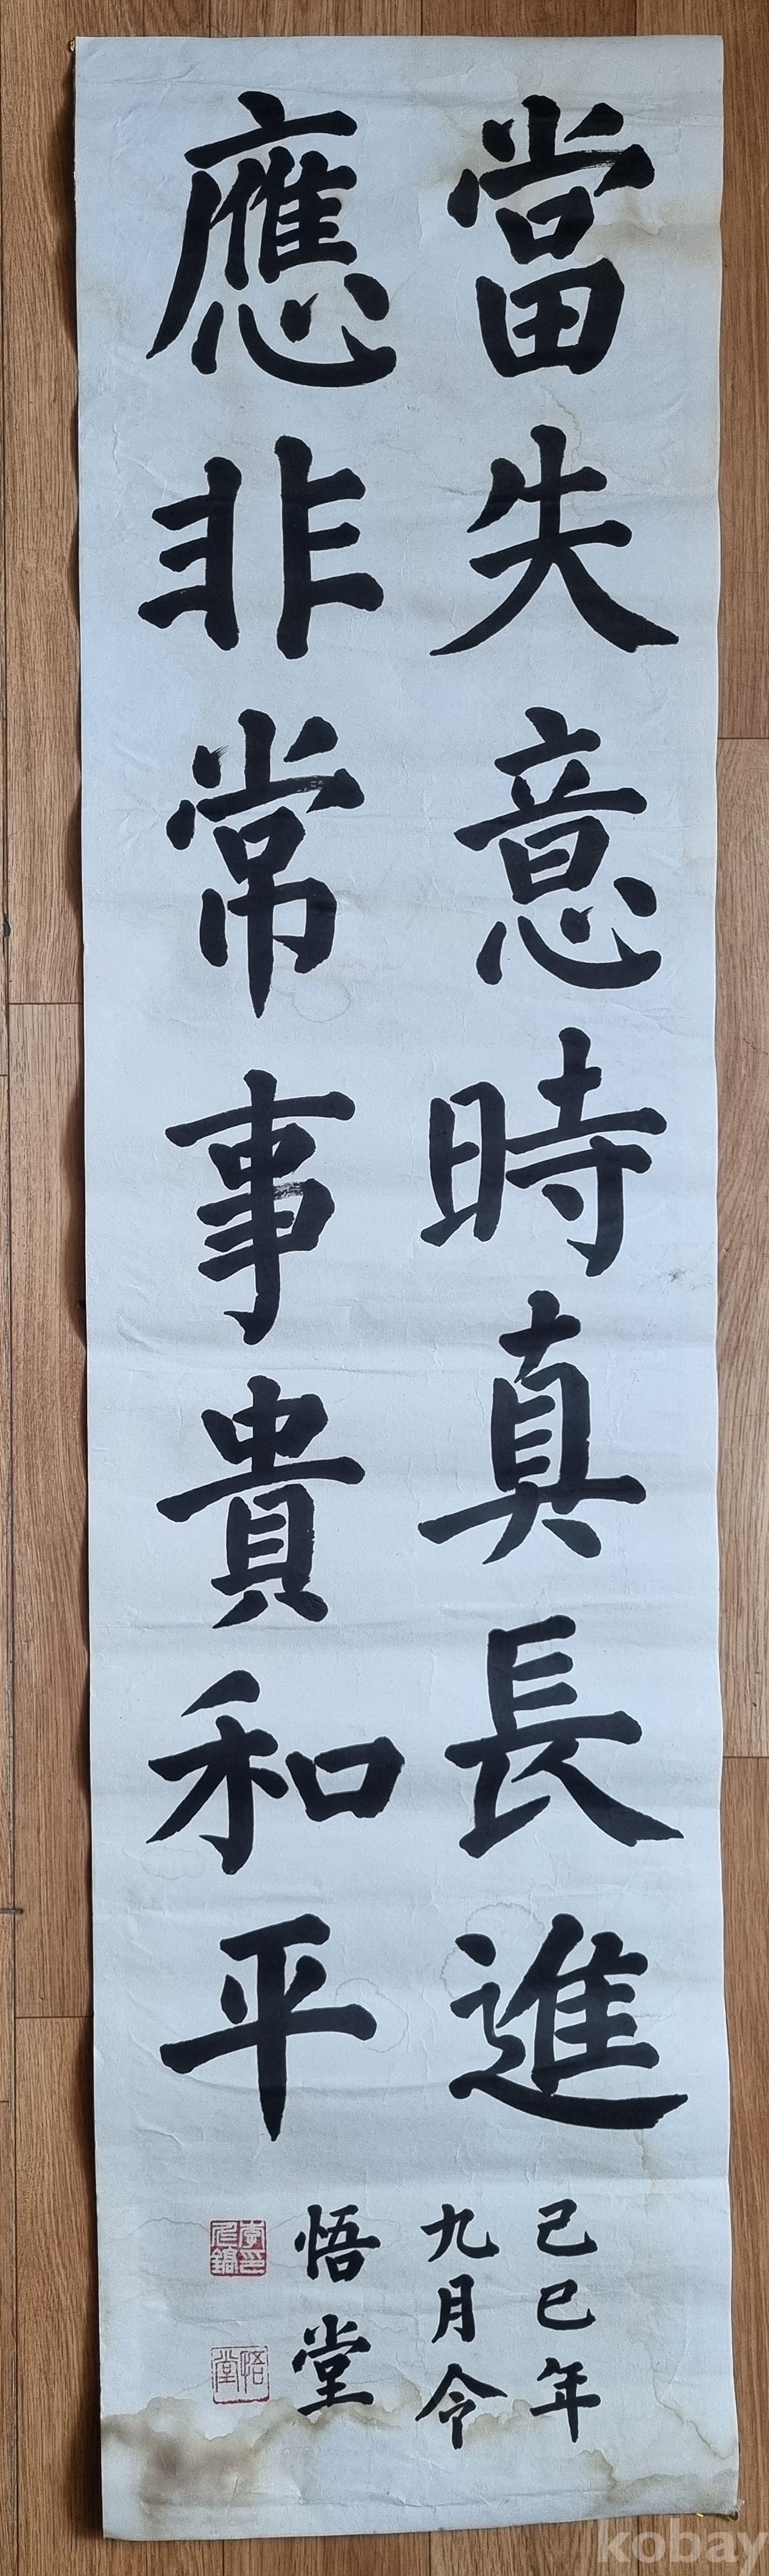 當失意時真長進
應非常事貴和平
己巳年
九月今
悟堂
悟堂
kobay